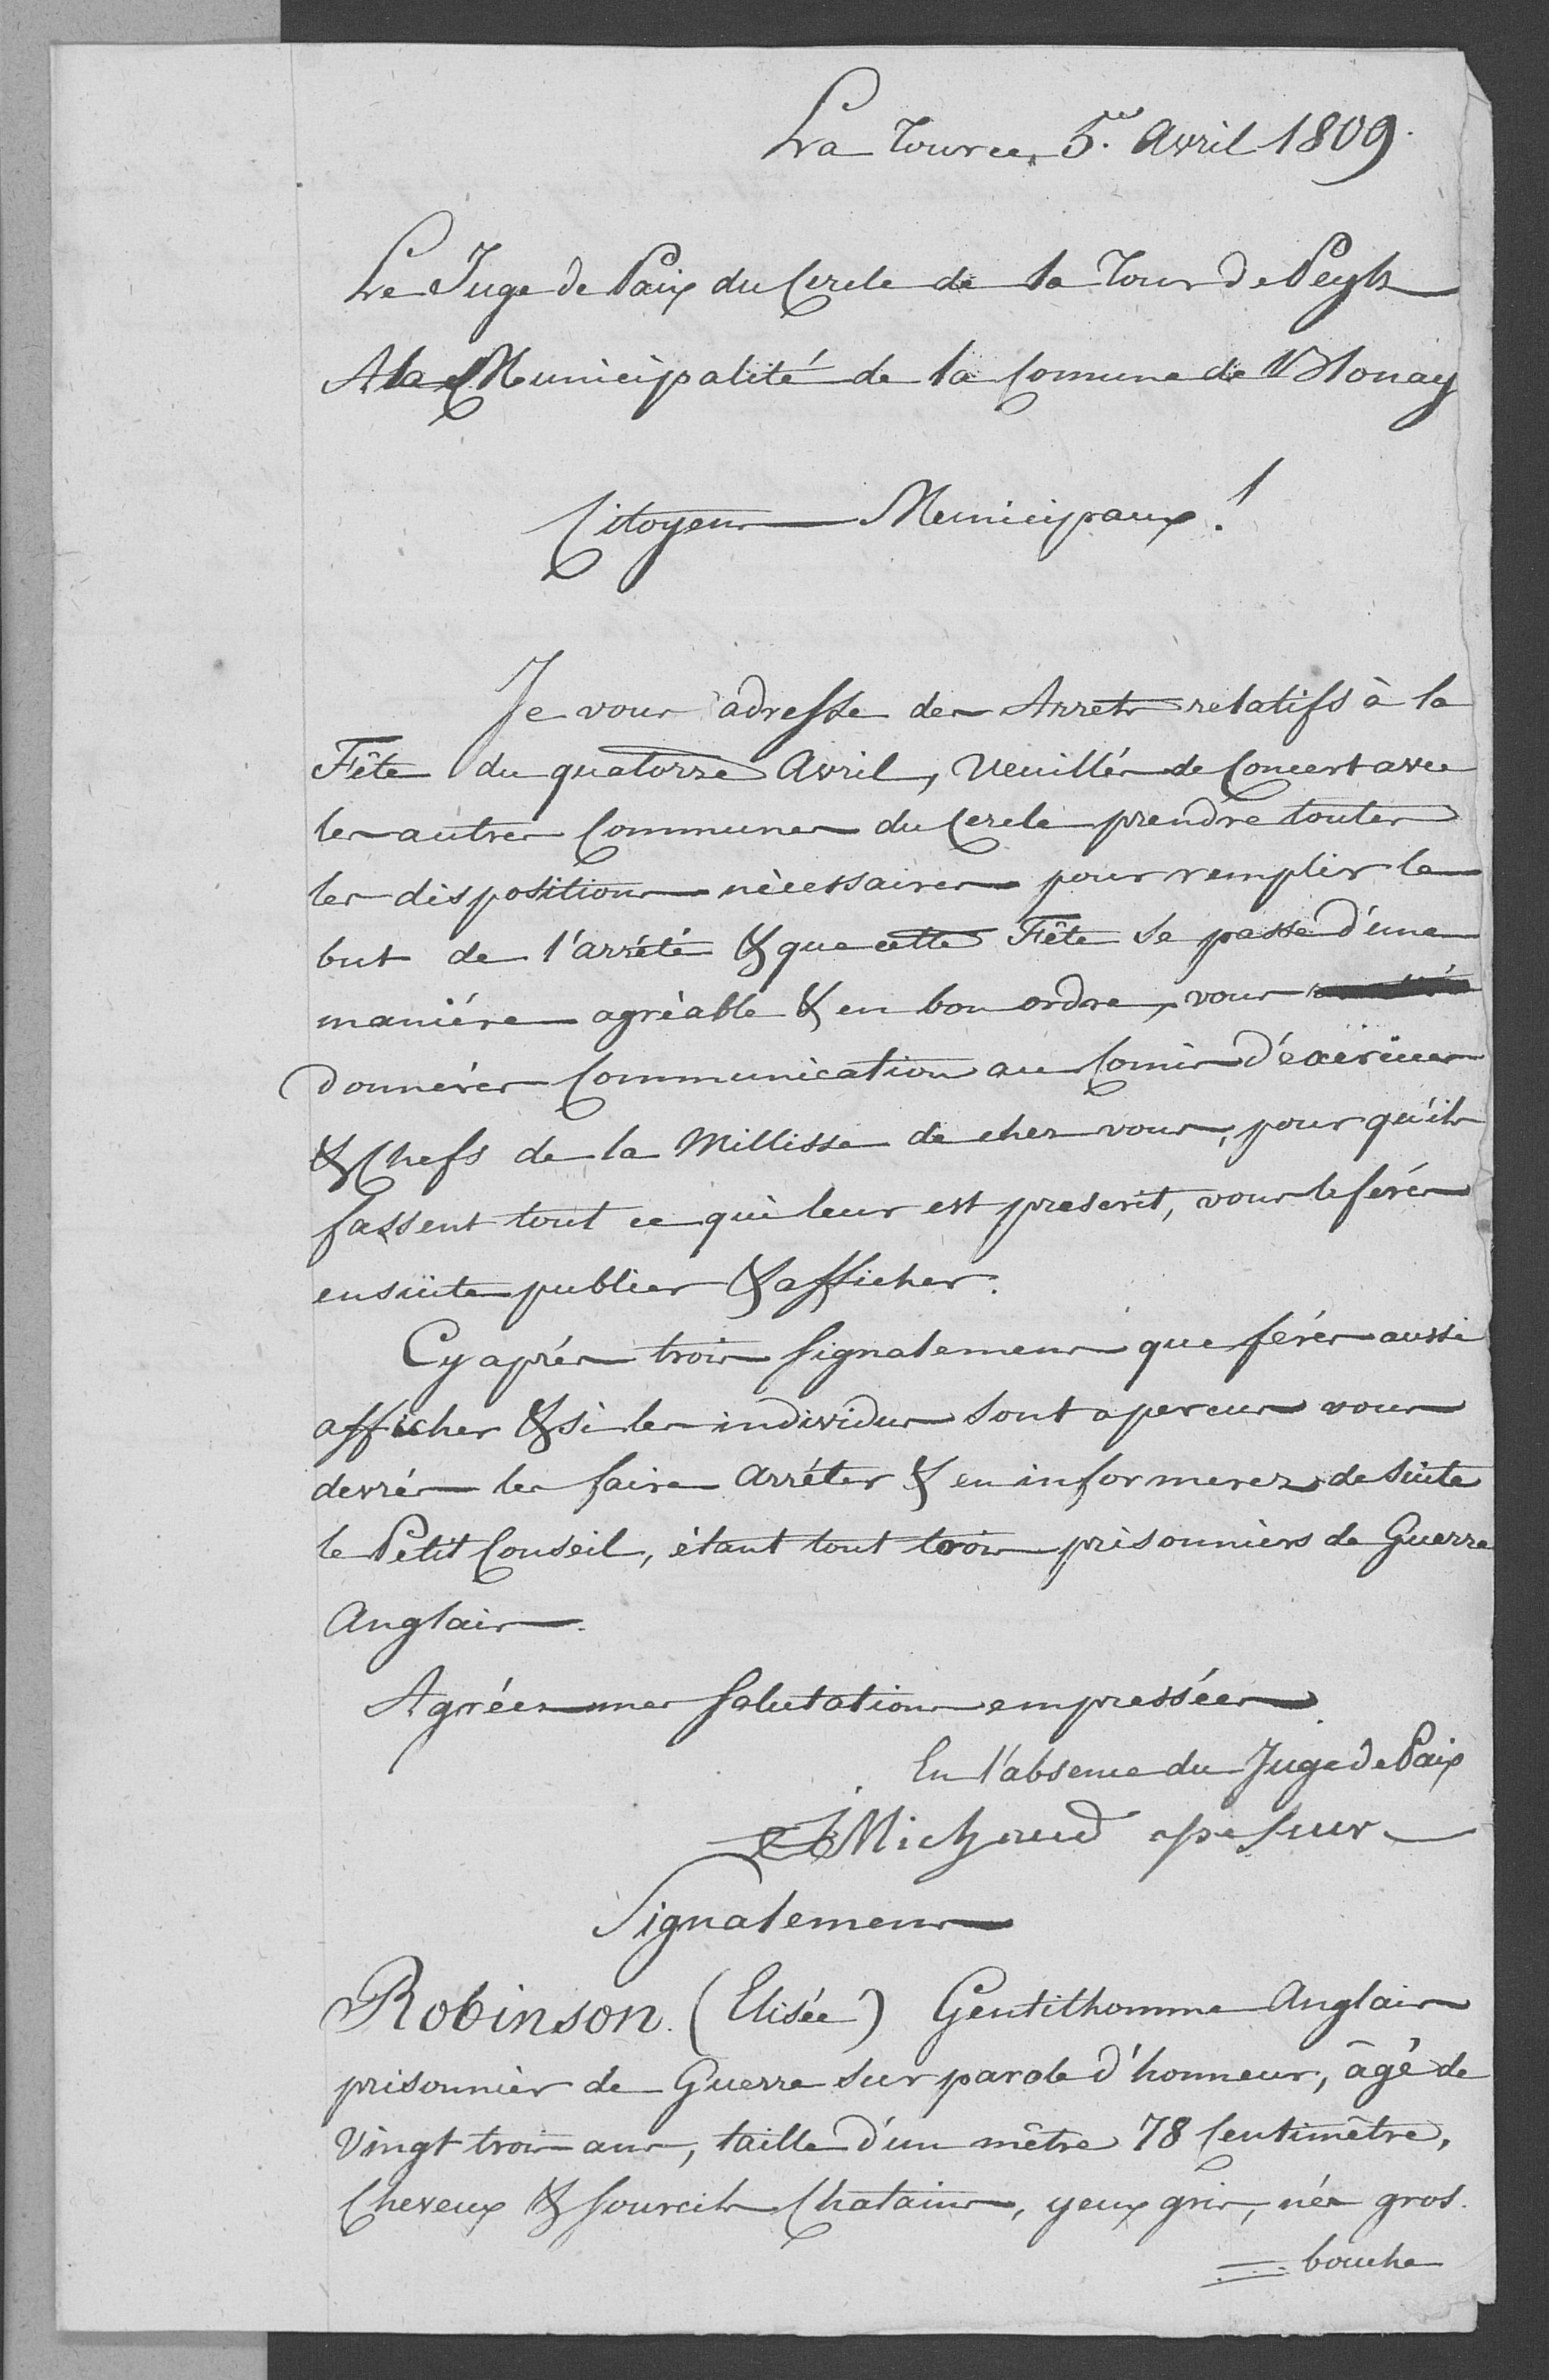 La Tour ce, 5.e Avril 1809.
Le Juge de Paix du Cercle de la Tour de Peylz
A la Municipalité de la Comune de Blonay
Citoyens Municipaux!
Je vous adresse des Arrets relatifs à la
Fête du quatorze Avril, Veuillés de Concert avec
les autres Communes du Cercle prendre toutes
les dispositions nècessaires pour remplir le
but de l'arrété & que cette Fête se passe d'une
maniére agrèable & en bon ordre, vous
donnérés Communication au Comis d'éxercices
& Chefs de la Millisse de chez vous, pour qu'ils
fassent tout ce qui leur est prescrit, vous le ferés
ensuite publier & afficher.
Cy aprés trois signalemens que ferés aussi
afficher & si les individus sont apercus vous
devrés les faire arréter & en informerez de suite
le Petit Conseil, étant tout trois prisonniers de Guerre
Anglais.
Agréez mes salutations empressées.
En l'absence du Juge de Paix
Michaud assesseur
Signalemens
Robinson. (Elisée) Gentilhomme Anglais
prisonnier de Guerre sur parole d'honneur, âgé de
Vingt trois ans, taille d'un mêtre 78 Centimêtre,
Cheveux & sourcils Chatains, yeux gris, nés gros.
bouche